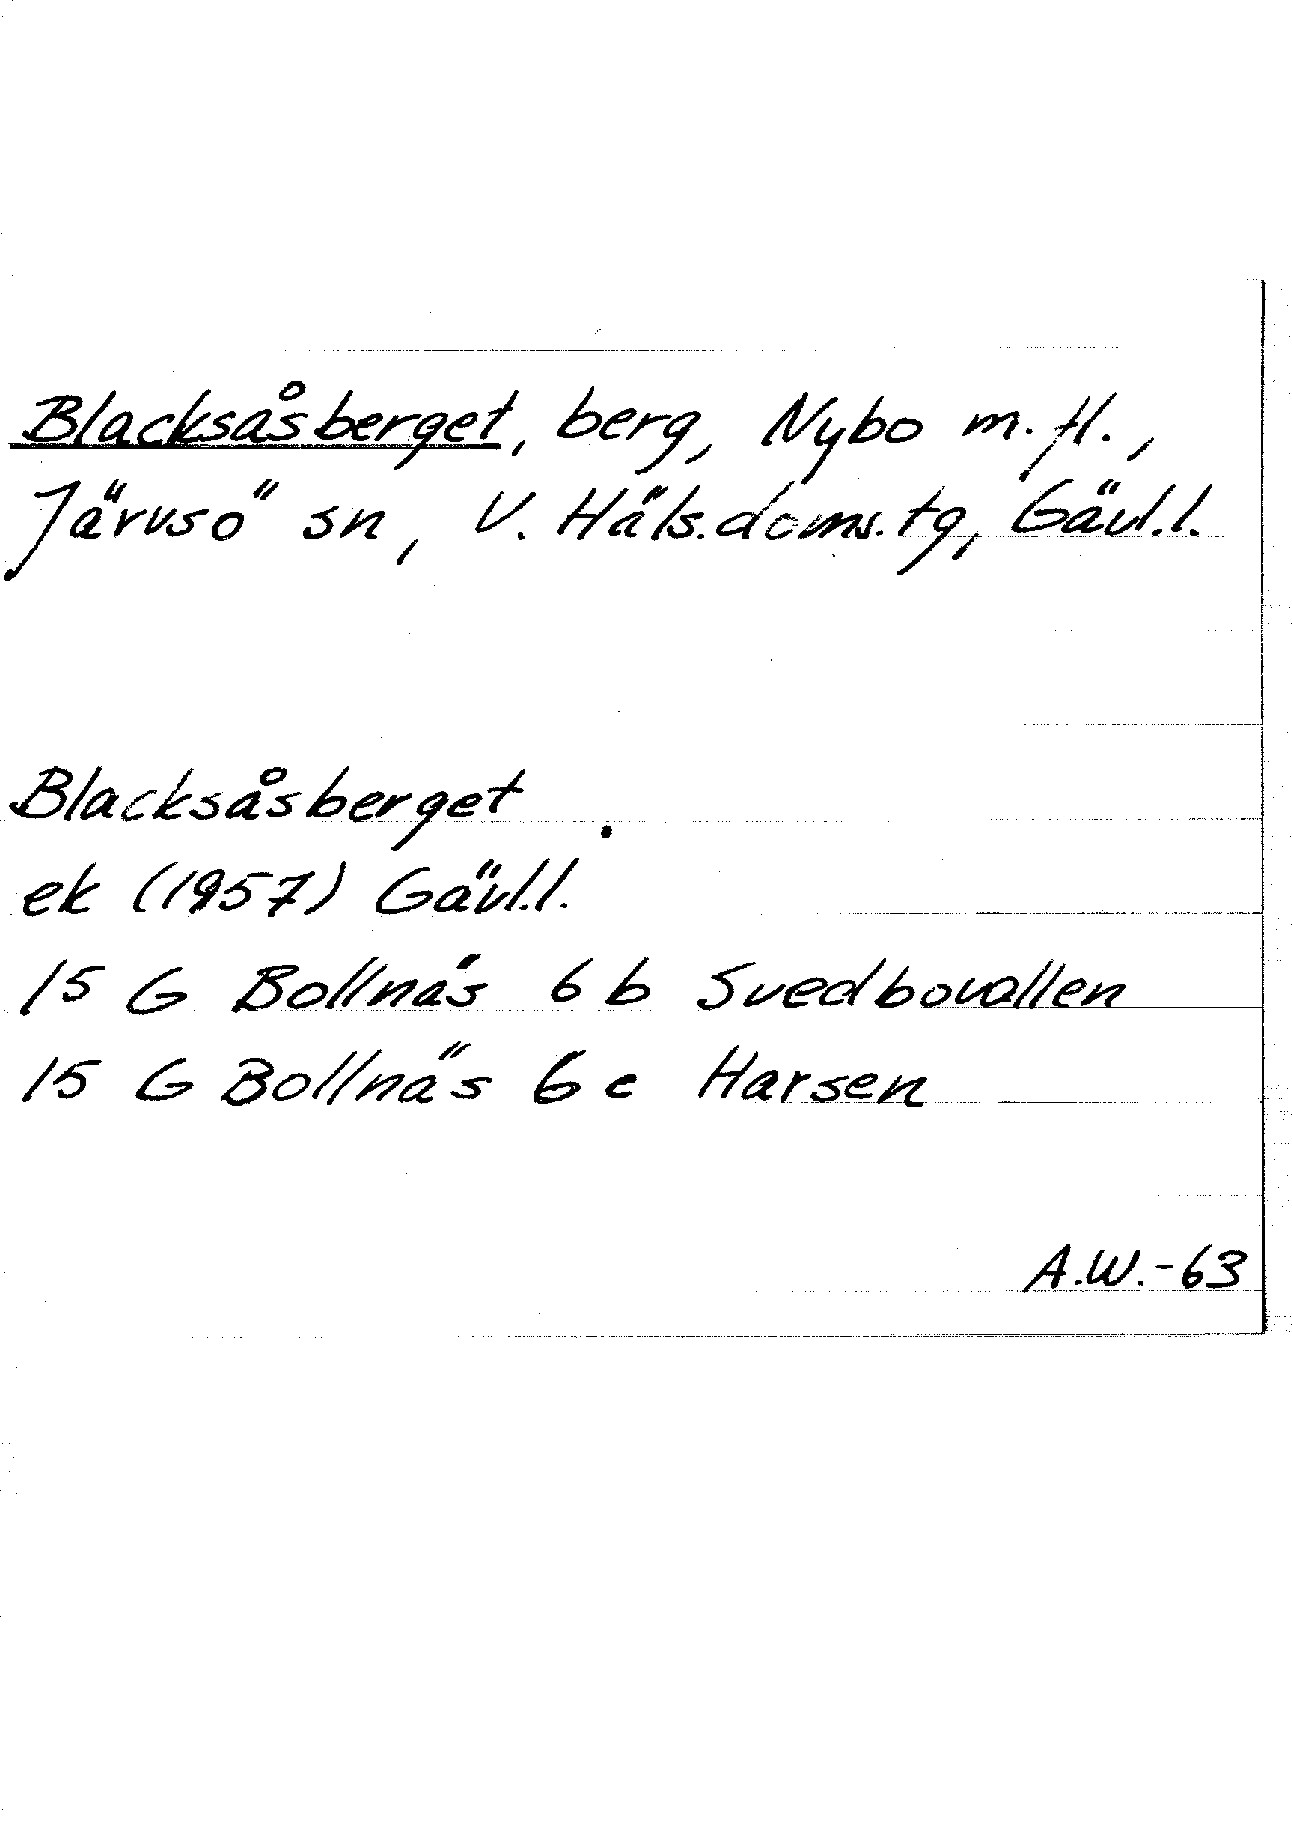 Blacksåsberget, berg, Nybo m.fl.,
Järvsö sn, V. Häls.doms.tg, Gävl.l.
Blacksåsberget
ek (1957) Gävl.l.
15 G Bollnäs 6 b Svedbovallen
15 G Bollnäs 6 c Harsen
A.W.-63